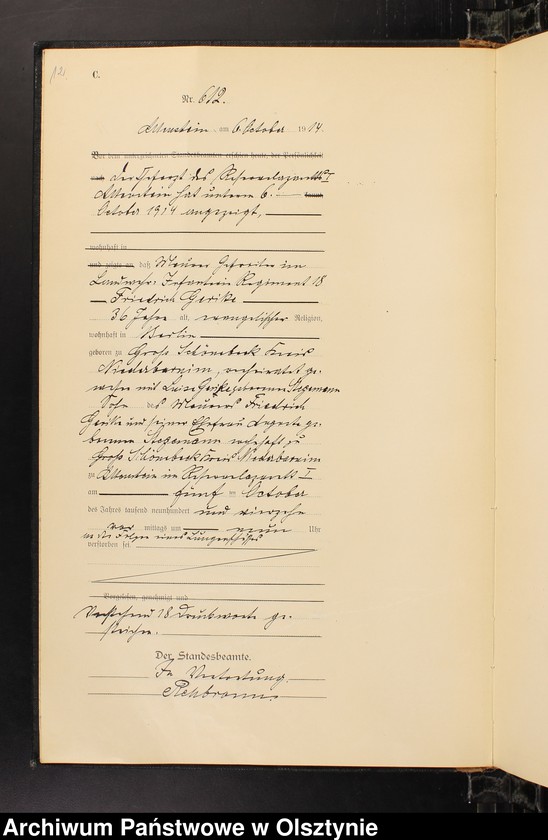 C.
Nr. 612.
Allenstein, am 6 October 1914.
Vor dem unterzeichneten Standesbeamten erschien heute, der Persönlichkeit
nach der Chefarzt des Reservelazaretts I
Allenstein hat unterm 6.
October 1914 angezeigt,
wohnhaft in
und zeigte an, daß Maurer Gefreiter im
Landwehr-Infanterie Regiment 18
Friedrich Gerike
36 Jahre alt, evangelischer Religion,
wohnhaft in Berlin
geboren zu Groß Schönebeck Kreis
Niederbarnim, verheiratet ge-
wesen mit Luise Gerike geborenen Stegemann
Sohn des Maurers Friedrich
Gerike und seiner Ehefrau Auguste ge-
borenen Stegemann wohnhaft zu
Groß Schönebeck Kreis Niederbarnim
zu Allenstein im Reservelazarett I
am fünf ten October
des Jahres tausend neunhundert und vierzehn
vor mittags um neun Uhr
an den Folgen eines Lungenschusses
verstorben sei.
Vorgelesen, genehmigt und
Vorstehend 18 Druckworte ge-
strichen.
Der Standesbeamte.
In Vertretung
Archiwum Państwowe w Olsztynie